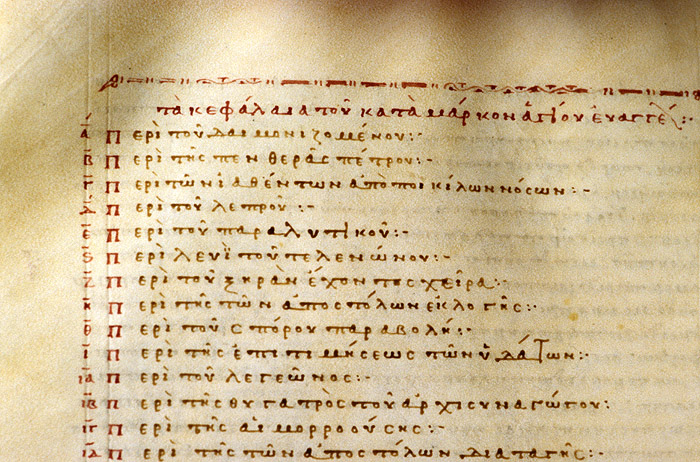 τὰ κεφάλαια τοῦ κατὰ μάρκον ἁγίου ἐυαγγε
α Περὶ τοῦ δαιμονιζομένου:-
β Περὶ τῆς πενθερᾶς πέτρου:-
γ Περὶ τῶν ἰαθέντων ἀπὸ ποικίλων νόσων:-
δ Περὶ τοῦ λεπροῦ:-
ε Περὶ τοῦ παραλυτικοῦ:-
ς Περὶ λευῒ τοῦ τελενώνου:-
ζ Περὶ τοῦ ξηρὰν ἔχοντος χεῖρα:-
η Περὶ τῆς τῶν ἀποστόλων ἐκλογῆς:-
θ Περὶ τοῦ σπόρου παραβολή:-
ι Περὶ τῆς ἐπιτιμήσεως τῶν ὑδάτων:-
ια Περὶ τοῦ λεγεῶνος:-
ιβ Περὶ τῆς θυγατρὸς τοῦ ἀρχισυναγώγου:
ιγ Περὶ τῆς αἱμορροούσης:-
ιδ Περὶ τῆς τῶν ἀποστόλων διαταγῆς:-